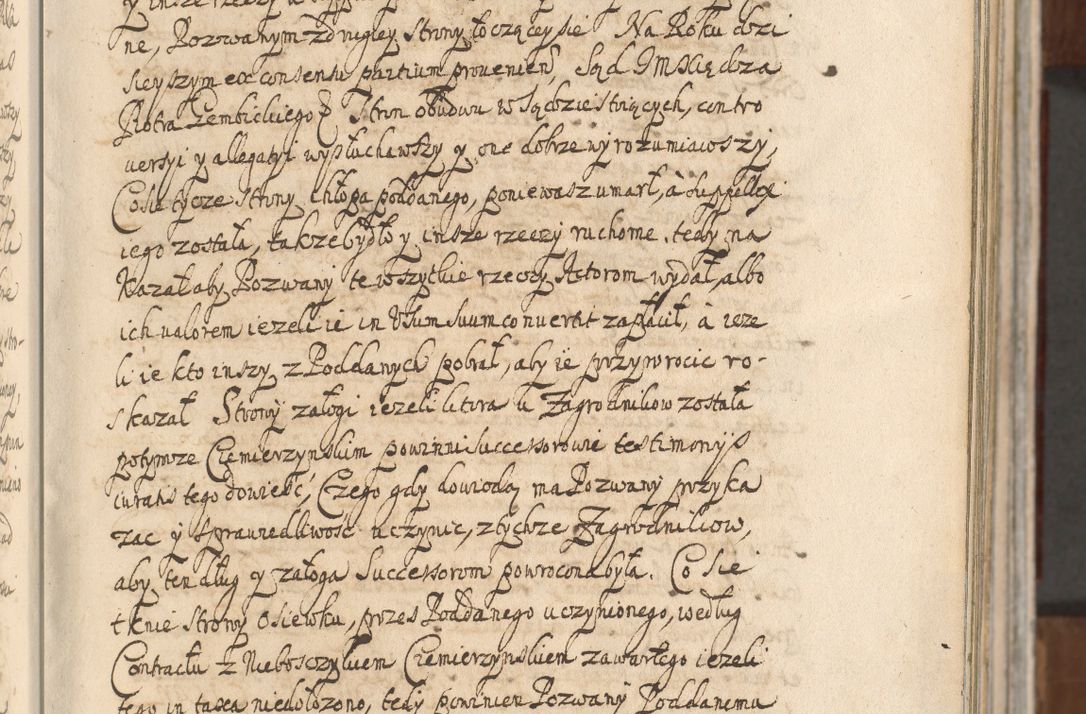 ne, Pozwanym zdrugiey strony toczącey sie Na Roku dzi
sieyszym ex consensu partium provenien, Sąd JMXiędza
Piotra Gembickiego Stron obudwu w Sądzie stoiących, contro
versyi y allegatyi wysłuchawszy y one dobrze wyrozumiawszy,
Co sie tycze strony chłopa poddanego, poniewasz umarł, à suppellex
iego została, takze bydło y insze rzeczy ruchome, tedy na
kazał aby Pozwany te wszytkie rzeczy Actorom wydał, albo
ich valorem iezeli ie in Usum suum convertit zapłacił, à ieze
li ie kto inszy z Poddanych pobrał, aby ie przywrocic ro-
skazał Strony załogi iezeli ktora u Zagrodnikow została
potymze Ciemierzynskim powinni successorowie testimonys
iuratis tego dowiesć, Czego gdy dowiodą ma Pozwany przyka
zac y sprawiedliwość uczynic, z tychze Zagrodnikow,
aby ten dług y załoga Successorom powrocona była. Co sie
tknie strony osiewku, przes Poddanego uczynionego, według
Contractu z Nieboszczykiem Ciemierzynskiem zawartego iezeli
tego in taxa niedołozono, tedy powinien Pozwany Poddanemu